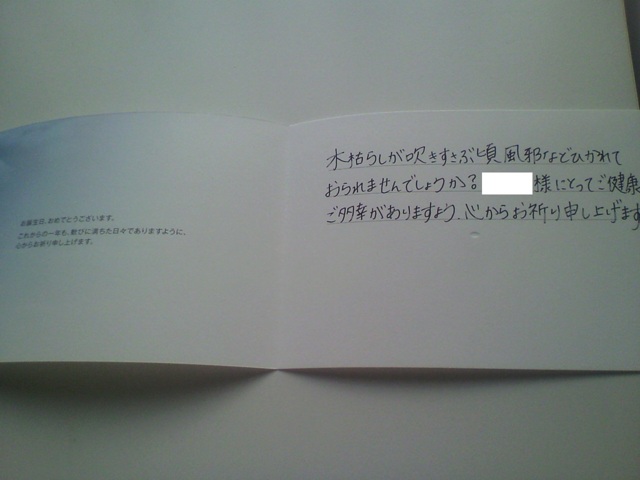 お誕生日、おめでとうございます。
これからの一年も、歓びに満ちた日々でありますように、
心からお祈り申し上げます。
木枯らしが吹きすさぶ頃 風邪などひかれて
おられませんでしょうか？
様にとってご健康
ご多幸がありますよう、心からお祈り申し上げます